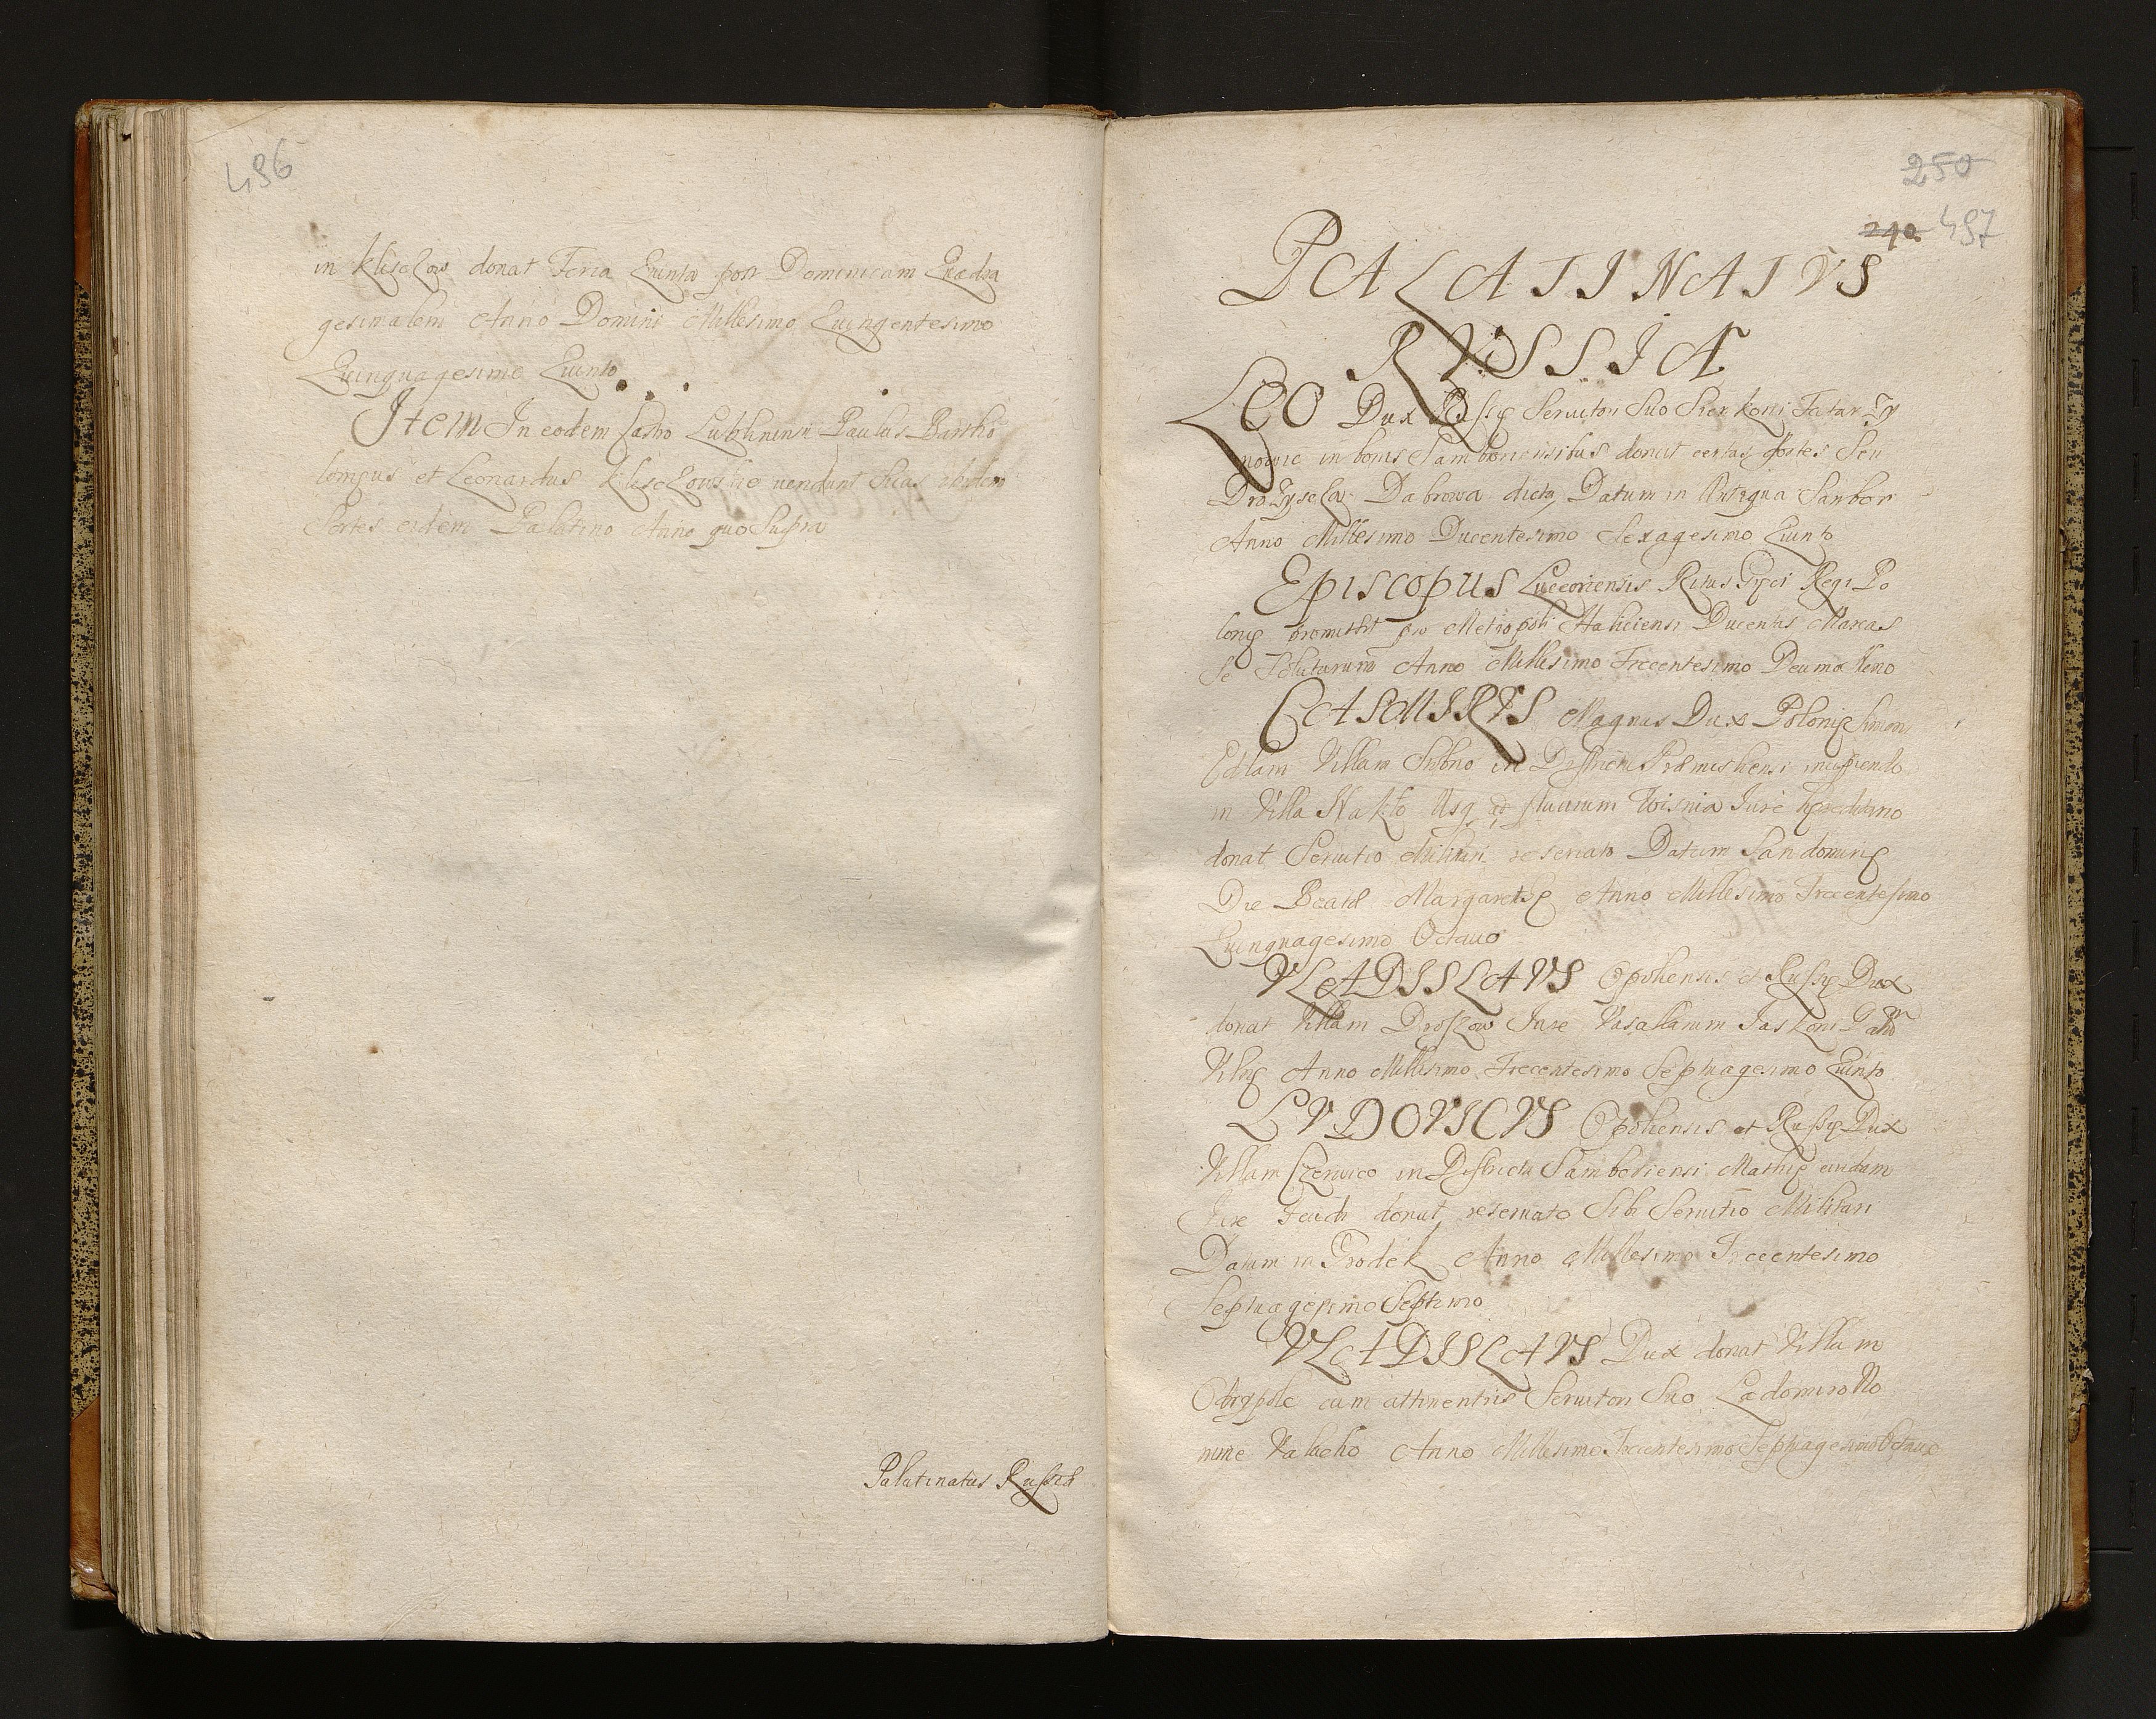 496
in Kliszow donat Feria Quinta post Dominicam Quadra
gesimalem Anno Domini Millesimo Quingentesimo
Quinquagesimo Quinto
Item In eodem Castro Lublinensi Paulus Bartho
lomęus et Leonardus vendunt Suas ibidem
Sortes eidem Palatino Anno quo Supra
Palatinatus Russiæ
250
240 497
PALATINATVS
RVSSIÆ
LEO Dux Russię Seruitori Suo Tatar
in bonis Samboriensibus donat certas Sortes Seu
Dabrowa dictą Datum in Antiqua Sambor
Anno Millesimo Ducentesimo Sexagesimo Quinto
Episcopus Luceoriensis Ritus Gręci Regi Po
lonię promittit pro Metropoli Haliciensi Ducentas Marcas
Se Soluturum Anno Millesimo Trecentesimo Decimo Nono
CASMIRVS Magnus Dux Polonię
Villam in Districtu Præmisliensi incipiendo
in Villa Nakło Usq ad fluuium Wisnia Jure hęreditario
donat Seruitio Militari reseruato Datum Sandomirię
Die Beatæ Margaretę Anno Millesimo Trecentesimo
Quinquagesimo Octauo
VLADISLAVS Opoliensis et Russię Dux
donat Villam Jure Vasallarum
Anno Millesimo Trecentesimo Septuagesimo Quinto
LVDOVICVS Opoliensis et Russię Dux
Villam in Districtu Samboriensi Mathię cuidam
Jure feudi donat reseruato Sibi Seruitio Militari
Datum in Grodek Anno Millesimo Trecentesimo
Septuagesimo Septimo
VLADISLAVS Dux donat Villam
cum attinentiis Seruitori Suo Ladomiro No
mine Valacho Anno Millesimo Trecentesimo Septuagesimo Octauo